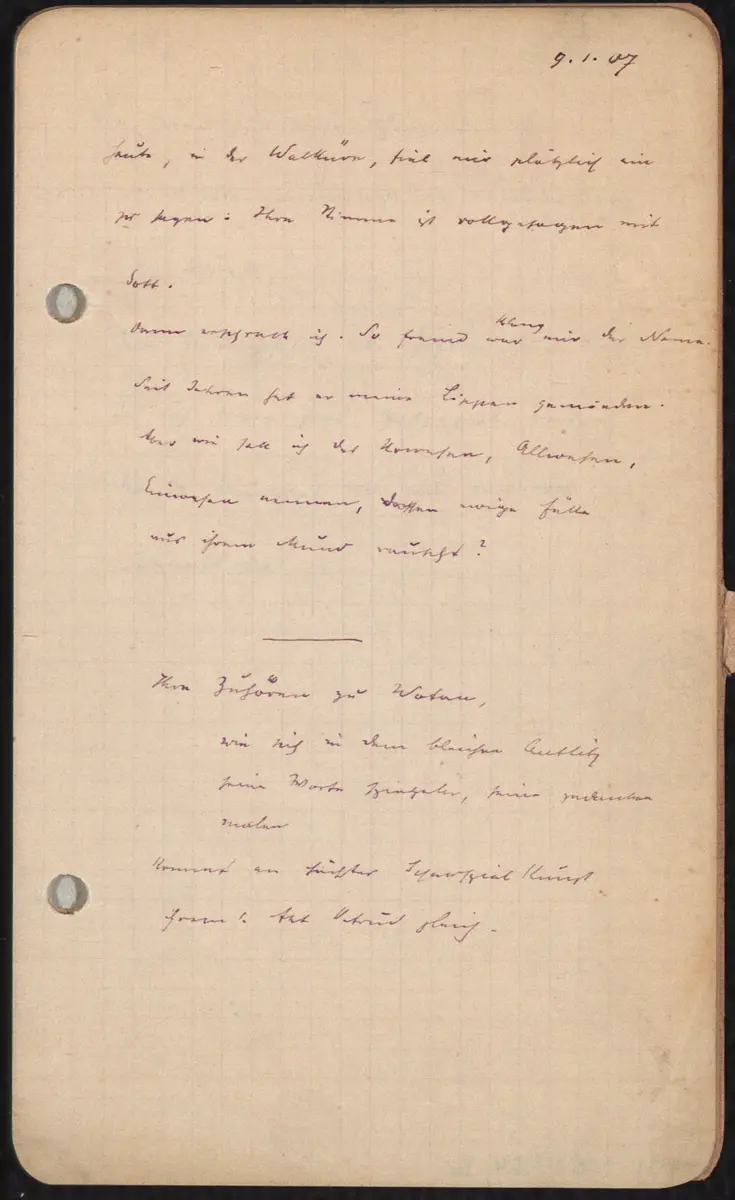 9.1.07
heute, in der Walküre, fiel mir plötzlich ein
zu sagen: Ihre Stimme ist vollgesogen mit
Gott.
Dann erschrack ich. So fremd klang mir der Name.
Seit Jahren hat er meine Lippen gemieden.
Aber wie soll ich das Urwesen, Allwesen,
Einwesen nennen, dessen ewige Fülle
aus ihrem Mund rauscht?
Ihre Zuhören zu Wotan,
wie sich in dem bleichen Antlitz
seine Worte spiegeln, seine gedanken
malen
kommt an höchster Schauspiel Kunst
ihrem 1. Akt Ortrud gleich.